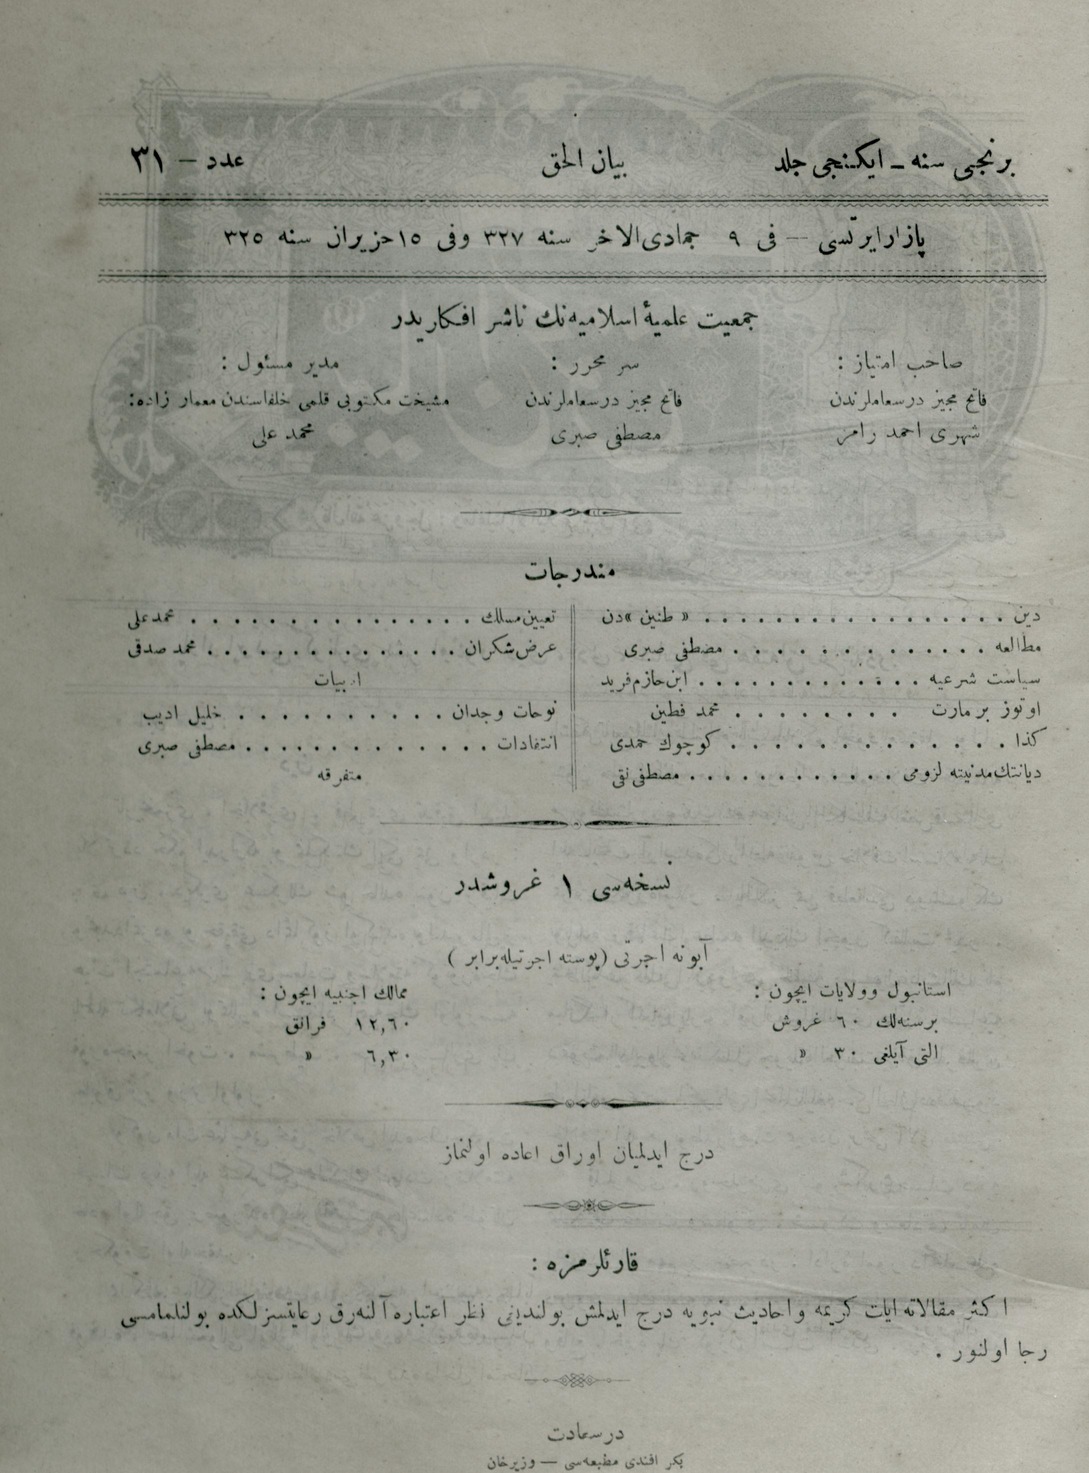 برنجی سنه ـ ایکنجی جلد بیان الحق عدد — ٣١
پازارایرتسی — فی ٩ جمادی‌الاخر سنه ٣٢٧ وفی ١٥ حزیران سنه ٣٢٥
جمعیت علمیهٔ اسلامیه‌نك ناشر افکاریدر
صاحب امتیاز :
فاتح مجیز درسعاملرندن
شهری احمد رامز
سر محرر :
فاتح مجیز درسعاملرندن
مصطفی صبری
مدیر مسئول :
مشیخت مکتوبی قلمی خلفاسندن معمار زاده:
محمد علی
مندرجات
دین . . . . . . . . . . . . . . . . . « طنین »دن
مطالعه . . . . . . . . . . . . . . مصطفی صبری
سیاست شرعیه . . . . . . . . . . . . . ابن‌حازم‌فرید
اوتوز بر مارت . . . . . . . . محمد فطین
کذا . . . . . . . . . . . . . . کوچوك حمدی
دیانتك‌مدنیته لزومی . . . . . . . . . . . . مصطفی‌تقی
تعیین‌مسلك . . . . . . . . . . . . . . . محمدعلی
عرض‌شکران . . . . . . . . . . . . . . محمد صدقی
ادبیات
نوحات وجدان . . . . . . . . . . . خلیل ادیب
انتقادات . . . . . . . . . . . . . . مصطفی صبری
متفرقه
نسخه‌سی ١ غروشدر
آبونه اجرتی (پوسته اجرتیله‌برابر )
استانبول وولایات ایچون :
برسنه‌لك ٦٠ غروش
التی آیلغی ٣٠ »
ممالك اجنبیه ایچون :
١٢,٦٠ فرانق
٦,٣٠ »
درج ایدلمیان اوراق اعاده اولنماز
قارئلرمزه :
اکثر مقالاته ایات کریمه واحادیث نبویه درج ایدلمش بولندیغی نظر اعتباره آلنه‌رق رعایتسزلکده بولنلمامسی
رجا اولنور .
درسعادت
بکر افندی مطبعه‌سی — وزیرخان